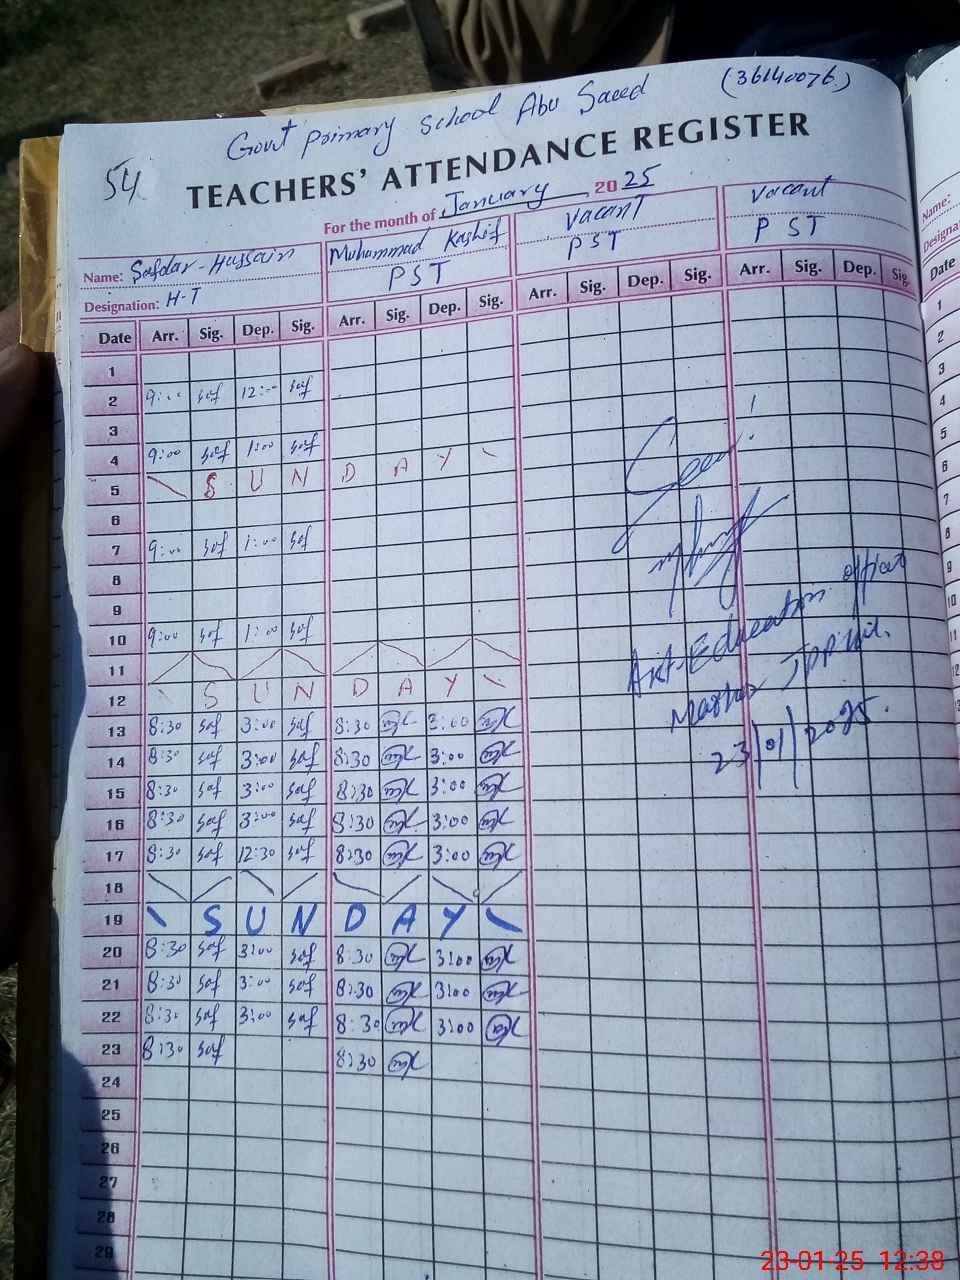 Govt Primary School Abu Saeed (36140076)
54
TEACHERS' ATTENDANCE REGISTER
For the month of January 2025
Name: Safdar Hussain Muhammad Kashif Vacant Vacant Name:
Designation: H-T PST PST PST Designa
Date Arr. Sig. Dep. Sig. Arr. Sig. Dep. Sig. Arr. Sig. Dep. Sig. Arr. Sig. Dep. Sig. Date
1 1
2 9:00 saf 12:00 saf 2
3 3
4 9:00 saf 1:00 saf 4
5 \ S U N D A Y \ 5
6 6
7 9:00 saf 1:00 saf 7
8 8
9 9
10 9:00 saf 1:00 saf 10
11 11
12 \ S U N D A Y \ 12
13 8:30 saf 3:00 saf 8:30 3:00
14 8:30 saf 3:00 saf 8:30 3:00
15 8:30 saf 3:00 saf 8:30 3:00
16 8:30 saf 3:00 saf 8:30 3:00
17 8:30 saf 12:30 saf 8:30 3:00
18
19 \ S U N D A Y \
20 8:30 saf 3:00 saf 8:30 3:00
21 8:30 saf 3:00 saf 8:30 3:00
22 8:30 saf 3:00 saf 8:30 3:00
23 8:30 saf 8:30
24
25
26
27
28
29
Seen
Asst-Education officer
Markaz
23/01/2025.
23-01-25 12:38